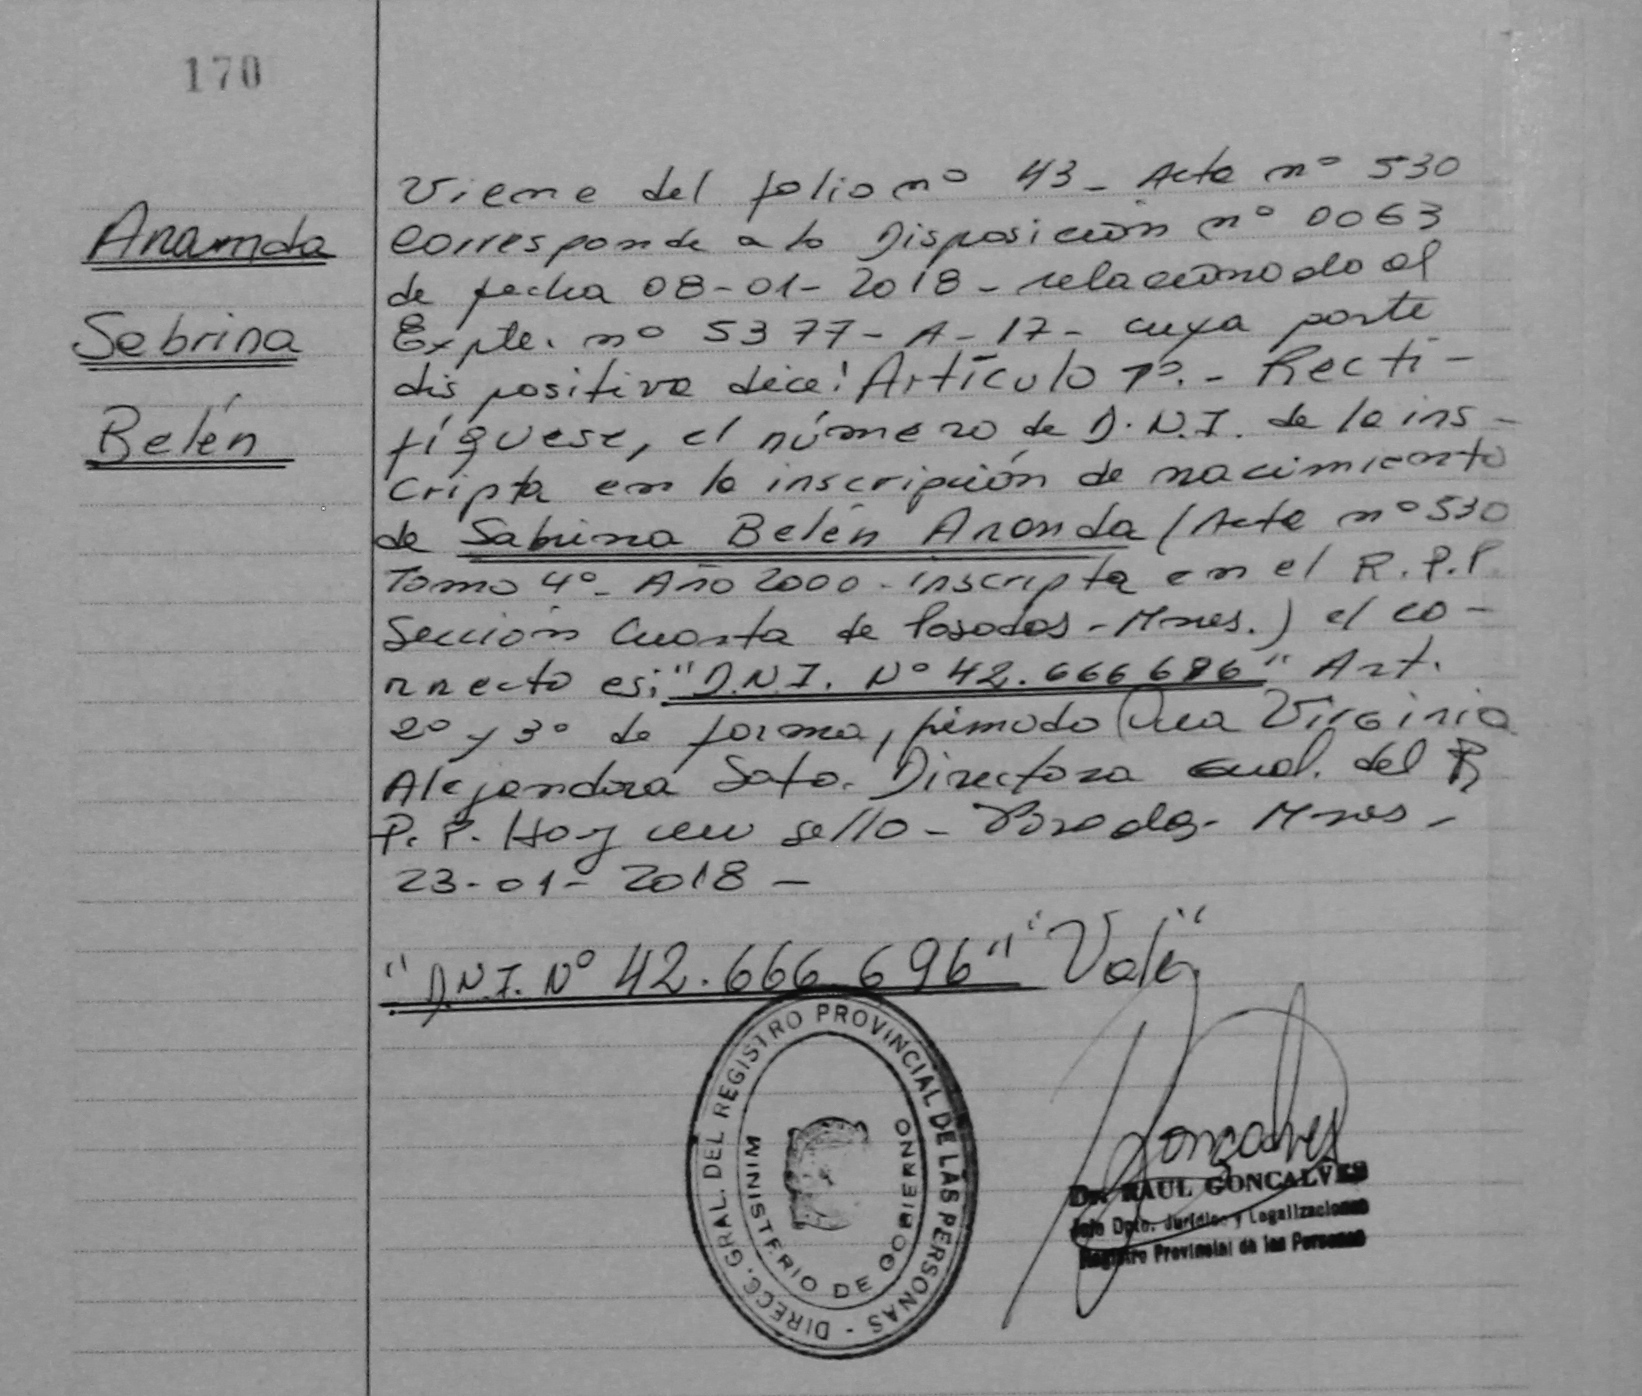 170
Aranda
Sabrina
Belén
Viene del folio nº 43 - Acta nº 530
Corresponde a la Disposición nº 0063
de fecha 08-01-2018 - relacionado al
Expte. nº 5377-A-17- cuya parte
dispositiva dice: Artículo 1º.- Recti-
fíquese, el número de D.N.I. de la ins-
cripta en la inscripción de nacimiento
de Sabrina Belén Aranda (Acta nº 530
Tomo 4º- Año 2000 - inscripta en el R.P.P.
Sección Cuarta de Posadas - Mnes.) el co-
rrecto es: "D.N.I. Nº 42.666 696" Art.
2º y 3º de forma, firmado Dra Virginia
Alejandra Soto. Directora Gral. del R.
P.P. Hay un sello - Posadas - Mnes -
23-01-2018 -
"D.N.I. Nº 42.666 696" "Vale"
DIRECC. GRAL. DEL REGISTRO PROVINCIAL DE LAS PERSONAS -
MINISTERIO DE GOBIERNO
Goncalves
Dr. RAUL GONCALVES
Jefe Dpto. Jurídico y Legalizaciones
Registro Provincial de las Personas